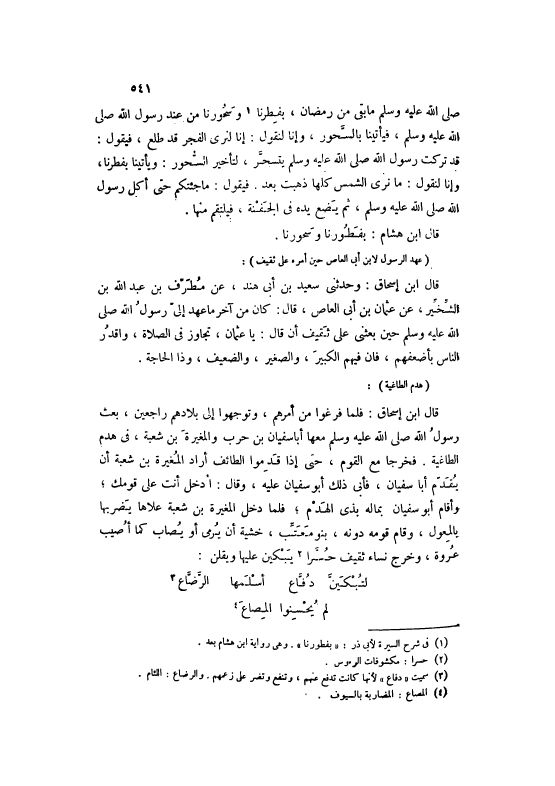 ٥٤١
صلى الله عليه وسلم مابقى من رمضان ، بفِطرنا ١ وسَحُورنا من عند رسول الله صلى
الله عليه وسلم ، فيأتينا بالسَّحور ، وإنا لنقول : إنا لنرى الفجر قد طلع ، فيقول :
قد تركت رسول الله صلى الله عليه وسلم يتسحَّر ، لتأخير السُّحور : ويأتينا بفطرنا،
وإنا لنقول : ما نرى الشمس كلها ذهبت بعد . فيقول : ماجئتكم حتى أكل رسول
الله صلى الله عليه وسلم ، ثم يَضع يده فى الجَفْنة ، فيلتقم منها .
قال ابن هشام : بفَطُورنا وسَحورنا .
( عهد الرسول لابن أبي العاص حين أمره على ثقيف ) :
قال ابن إسحاق : وحدثنى سعيد بن أبى هند ، عن مُطَرّف بن عبد الله بن
الشِّخِّير ، عن عثمان بن أبى العاص ، قال : كان من آخر ماعهد إلىّ رسولُ الله صلى
الله عليه وسلم حين بعثنى على ثَقيف أن قال : يا عثمان ، تجاوز فى الصلاة ، واقدُر
الناس بأضعفهم ، فان فيهم الكبيرَ ، والصغير ، والضعيف ، وذا الحاجة .
( هدم الطاغية ) :
قال ابن إسحاق : فلما فرغوا من أمرهم ، وتوجهوا إلى بلادهم راجعين ، بعث
رسولُ الله صلى الله عليه وسلم معها أباسفيان بن حرب والمغيرةَ بن شعبة ، فى هدم
الطاغية . فخرجا مع القوم ، حتى إذا قَدِموا الطائف أراد المُغيرة بن شعبة أن
يُقَدّم أبا سفيان ، فأبى ذلك أبوسفيان عليه ، وقال : ادخل أنت على قومك ؛
وأقام أبوسفيان بماله بذى الهَدْم ؛ فلما دخل المغيرة بن شعبة علاها يَضربها
بالمِعول ، وقام قومه دونه ، بنو مُعَتِّب ، خشية أن يُرمى أو يُصاب كما أُصيب
عُروة ، وخرج نساء ثقيف حُسَّرا ٢ يَبْكين عليها ويقلن :
لتُبْكَينَّ دُفَّاع أسْلَمها الرُّضَّاع ٣
لم يُحْسِنوا المِصاع ٤
(١) فى شرح السيرة لأبى ذر : « بفطورنا » . وهى رواية ابن هشام بعد .
(٢) حسرا : مكشوفات الرءوس .
(٣) سميت « دفاع » لأنها كانت تدفع عنهم ، وتنفع وتضر على زعمهم . والرضاع : اللئام .
(٤) المصاع : المضاربة بالسيوف .